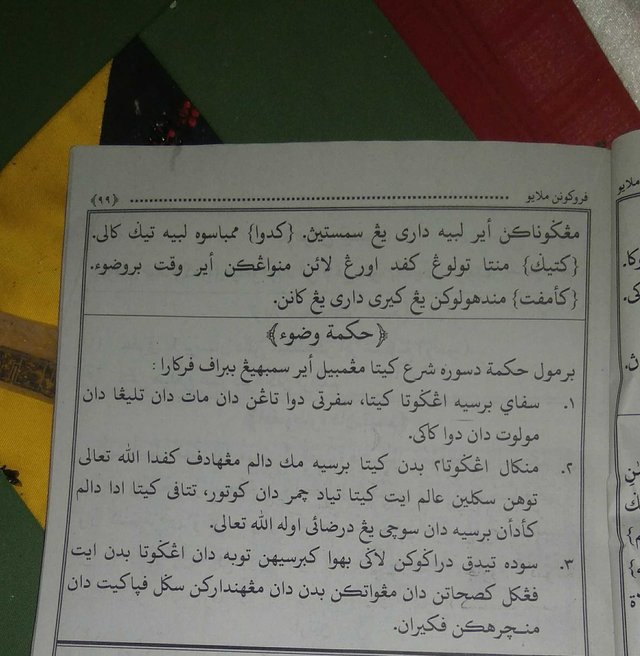 فروكونن ملايو ﴿٩٩﴾
مڠݢوناكن أير لبيه داري يڠ سمستيڽ. {كدوا} ممباسوه لبيه تيݢ كالي.
{كتيݢ} منتا تولوڠ كفد اورڠ لائن منواڠكن أير وقت بروضوء.
{كأمفت} مندهولوكن يڠ كيري داري يڠ كانن.
﴿حكمة وضوء﴾
برمول حكمة دسوره شرع كيتا مڠمبيل أير سمبهيڠ ببراف فركارا :
١. سفاي برسيه اڠݢوتا كيتا، سفرتي دوا تاڠن دان مات دان تليڠا دان
مولوت دان دوا كاكي.
٢. منكال اڠݢوتا٢ بدن كيتا برسيه مك دالم مڠهادف كفدا الله تعالى
توهن سكلين عالم ايت كيتا تياد چمر دان كوتور، تتافي كيتا ادا دالم
كأدأن برسيه دان سوچي يڠ درضائي اوله الله تعالى.
٣. سوده تيدق دراݢوكن لاݢي بهوا كبرسيهن توبه دان اڠݢوتا بدن ايت
فڠكل كصحاتن دان مڠواتكن بدن دان مڠهنداركن سݢل فپاكيت دان
منچرهكن فكيران.
ملايو